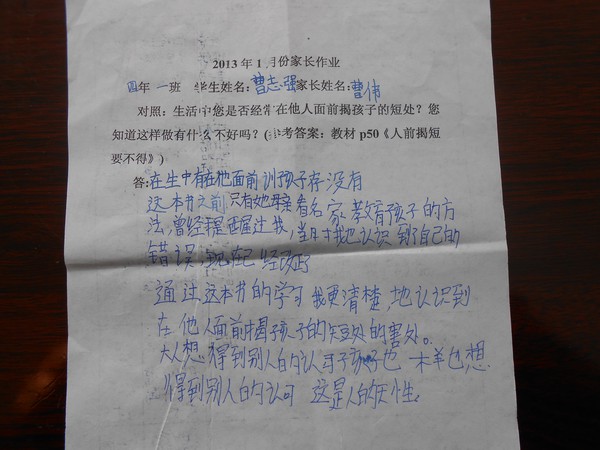 2013年1月份家长作业
四年一班 学生姓名:曹志强家长姓名:曹伟
对照:生活中您是否经常在他人面前揭孩子的短处?您
知道这样做有什么不好吗?(参考答案:教材 p50《人前揭短
要不得》)
答:在生中有在他面前训孩子存没有
这本书之前,只有她母亲看名家教育孩子的方
法,曾经提醒过我,当时我也认识到了自己的
错误,现在已经改正
通过这本书的学习我更清楚,地认识到
在他人面前揭孩子的短处的害处。
大人想得到别人的认可孩子也一样也想
得到别人的认可 这是人的天性。